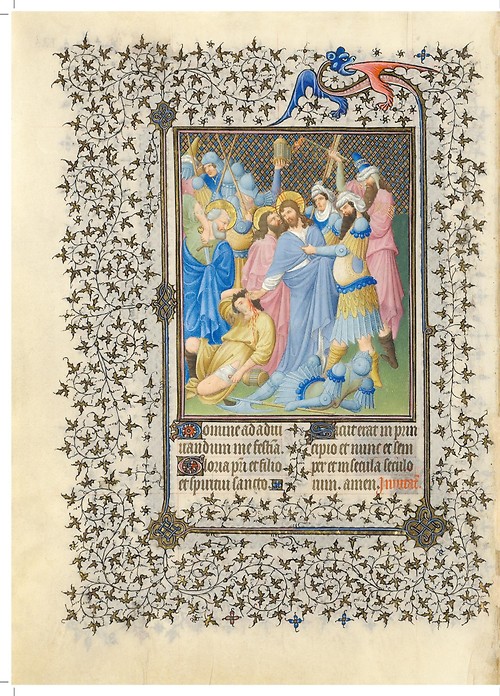 Domine ad adiu
uandum me festīa.
Gloria pr̄i et filio
et spiritui sancto.
Sicut erat in prin
cipio et nunc et sem
per et in secula seculo
rum. amen.